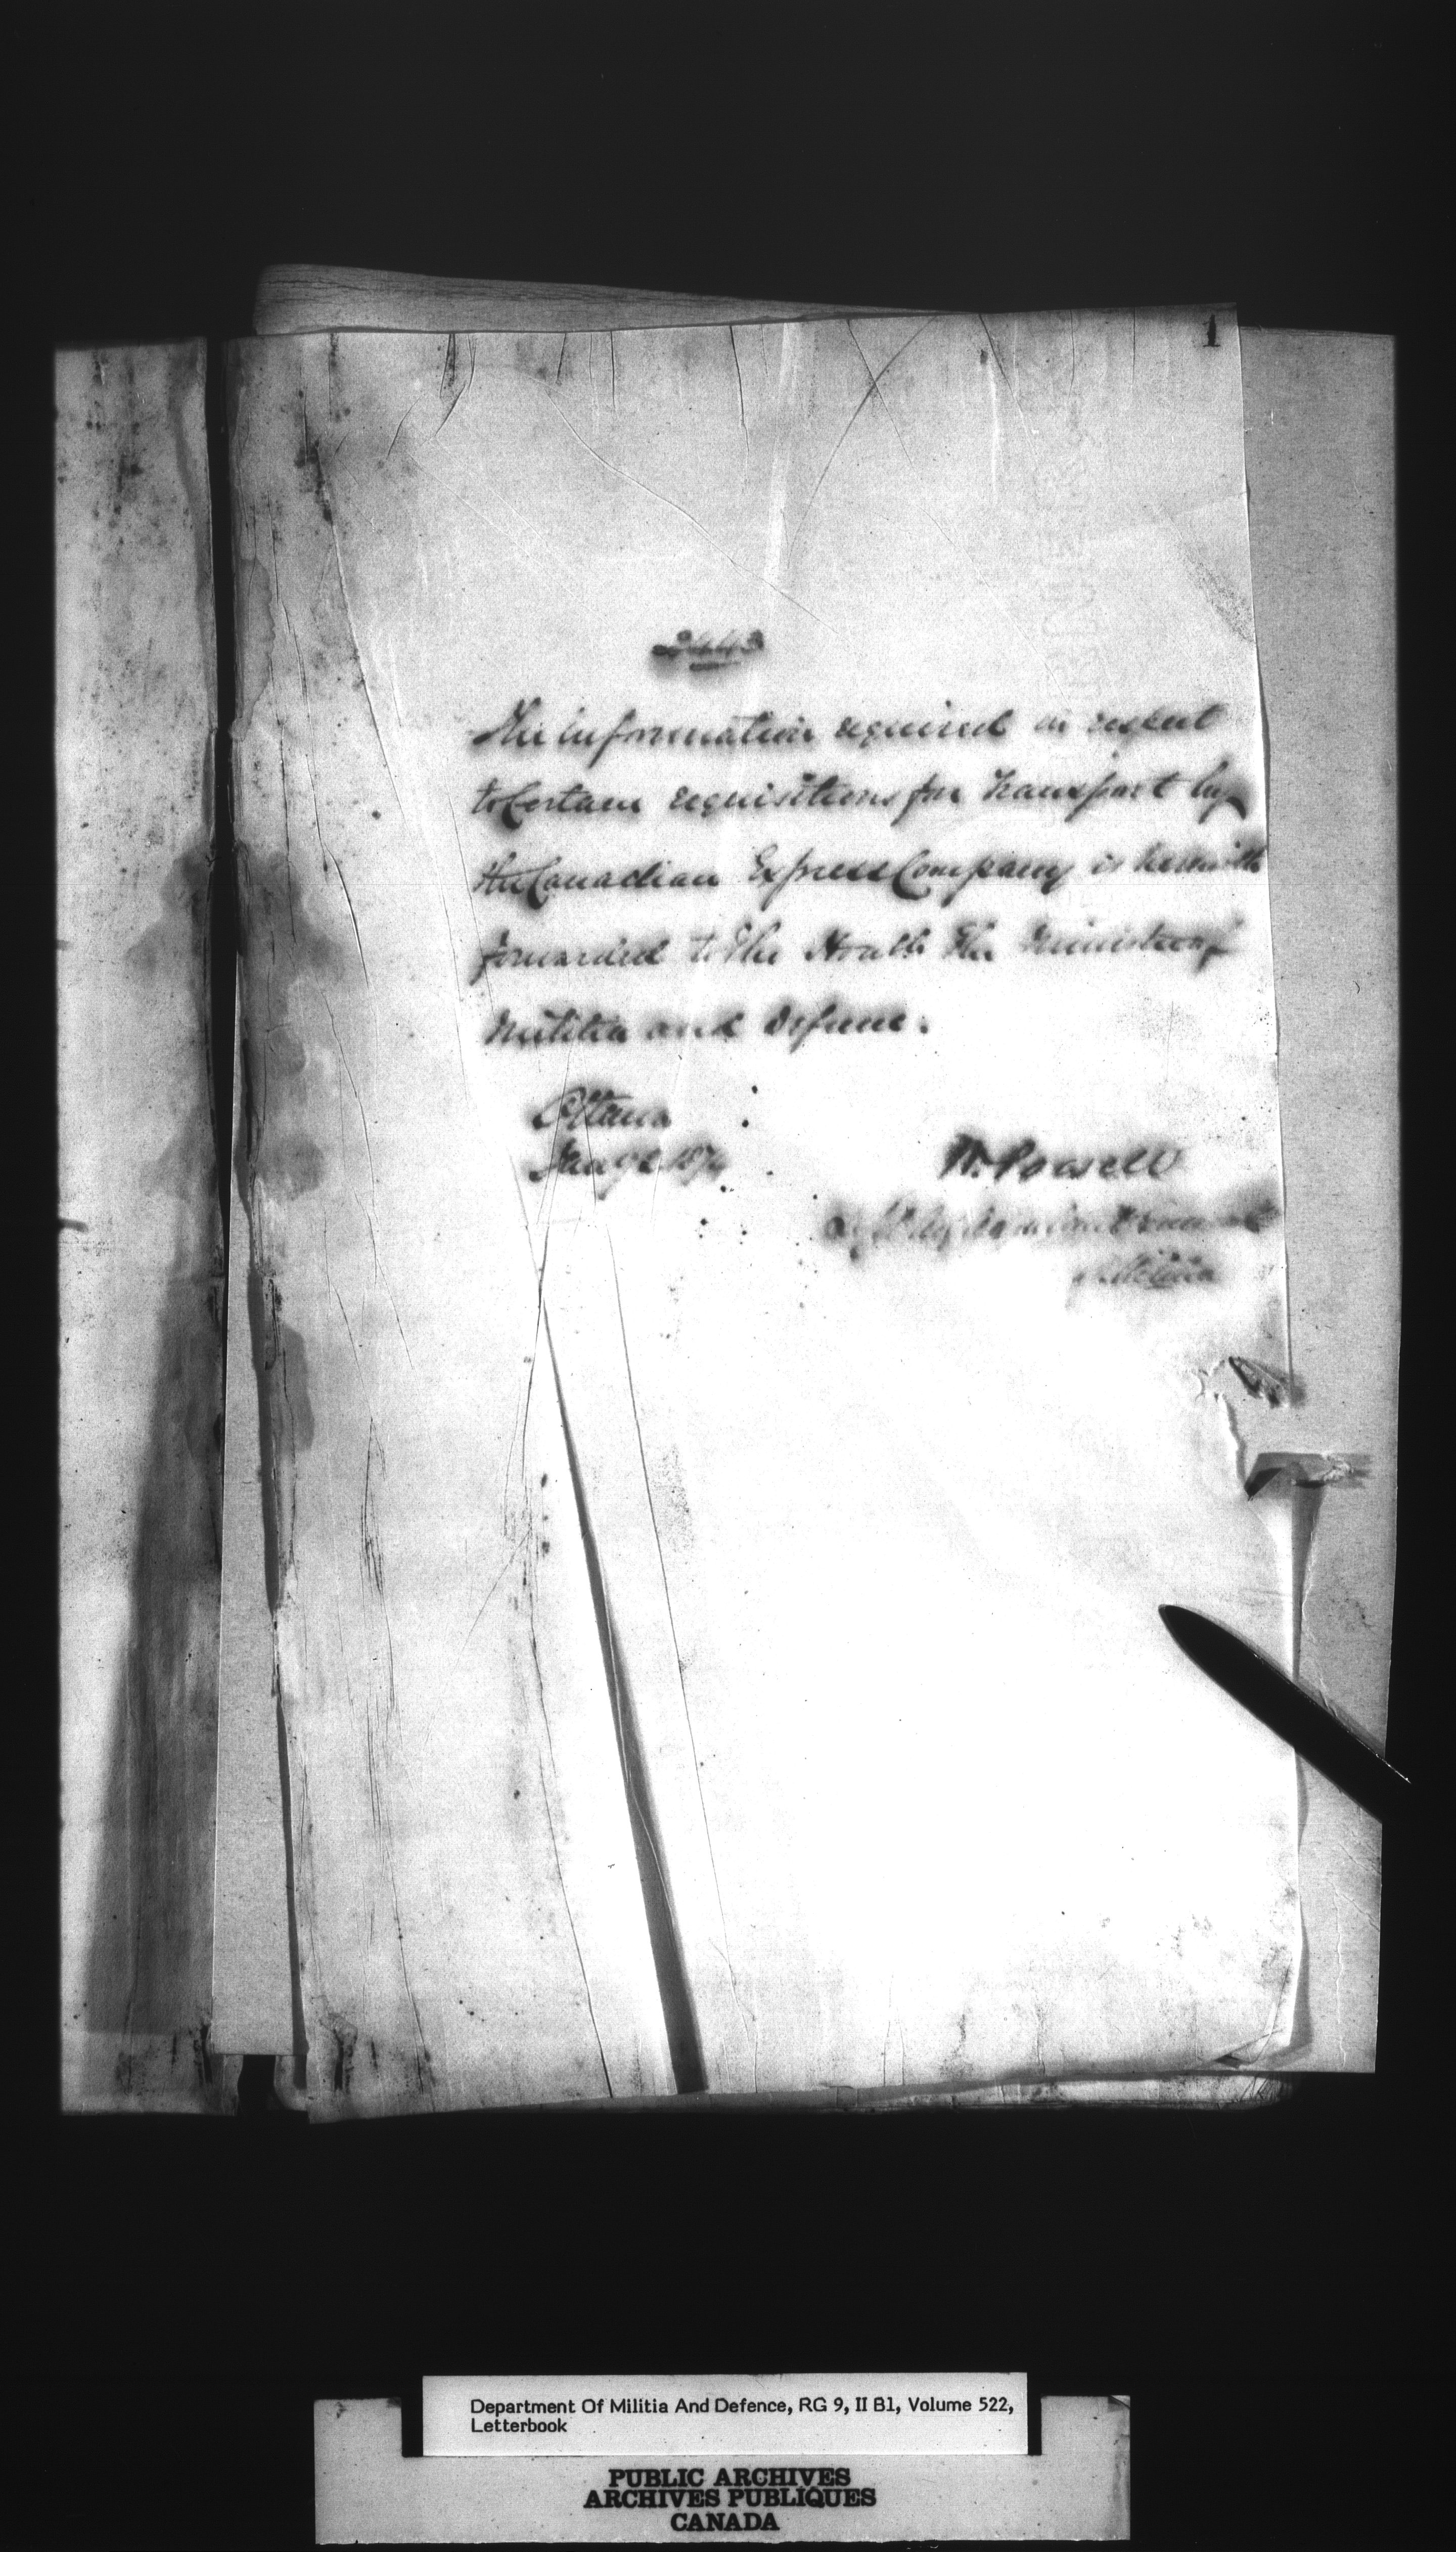 1
2443
The information required in respect
to Certain requisitions for Transport by
the Canadian Express Company is herewith
forwarded to The Honble The Minister of
Militia and Defence.
Ottawa
W. Powell
Militia
Department Of Militia And Defence, RG 9, II B1, Volume 522,
Letterbook
PUBLIC ARCHIVES
ARCHIVES PUBLIQUES
CANADA